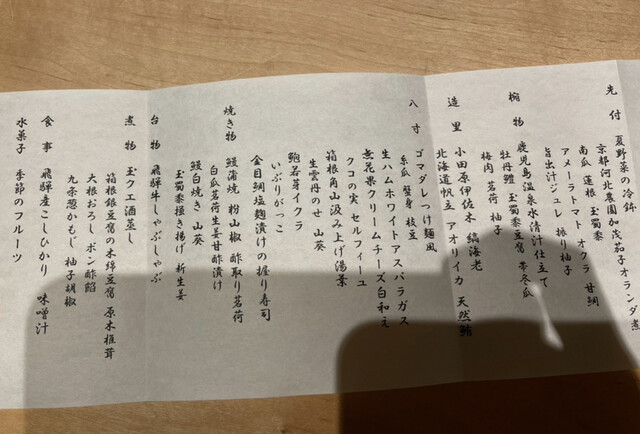 先付 夏野菜の冷鉢
京都河北農園加茂茄子オランダ煮
南瓜 蓮根 玉蜀黍
アメーラトマト オクラ 甘鯛
旨出汁ジュレ 振り柚子
椀物 鹿児島温泉水清汁仕立て
牡丹鱧 玉蜀黍豆腐 帯冬瓜
梅肉 茗荷 柚子
造里 小田原伊佐木 縞海老
北海道帆立 アオリイカ 天然鮪
八寸 ゴマダレつけ麺風
糸瓜 蟹身 枝豆
生ハムホワイトアスパラガス
無花果クリームチーズ白和え
クコの実 セルフィーユ
箱根角山汲み上げ湯葉
生雲丹のせ 山葵
鮑若芽イクラ
いぶりがっこ
金目鯛塩麹漬けの握り寿司
焼き物 鰻蒲焼 粉山椒 酢取り茗荷
白瓜茗荷生姜甘酢漬け
鰻白焼き 山葵
玉蜀黍掻き揚げ 新生姜
台物 飛騨牛しゃぶしゃぶ
煮物 玉クエ酒蒸し
箱根銀豆腐の木綿豆腐 原木椎茸
大根おろし ポン酢餡
九条葱かもじ 柚子胡椒
食事 飛騨産こしひかり 味噌汁
水菓子 季節のフルーツ